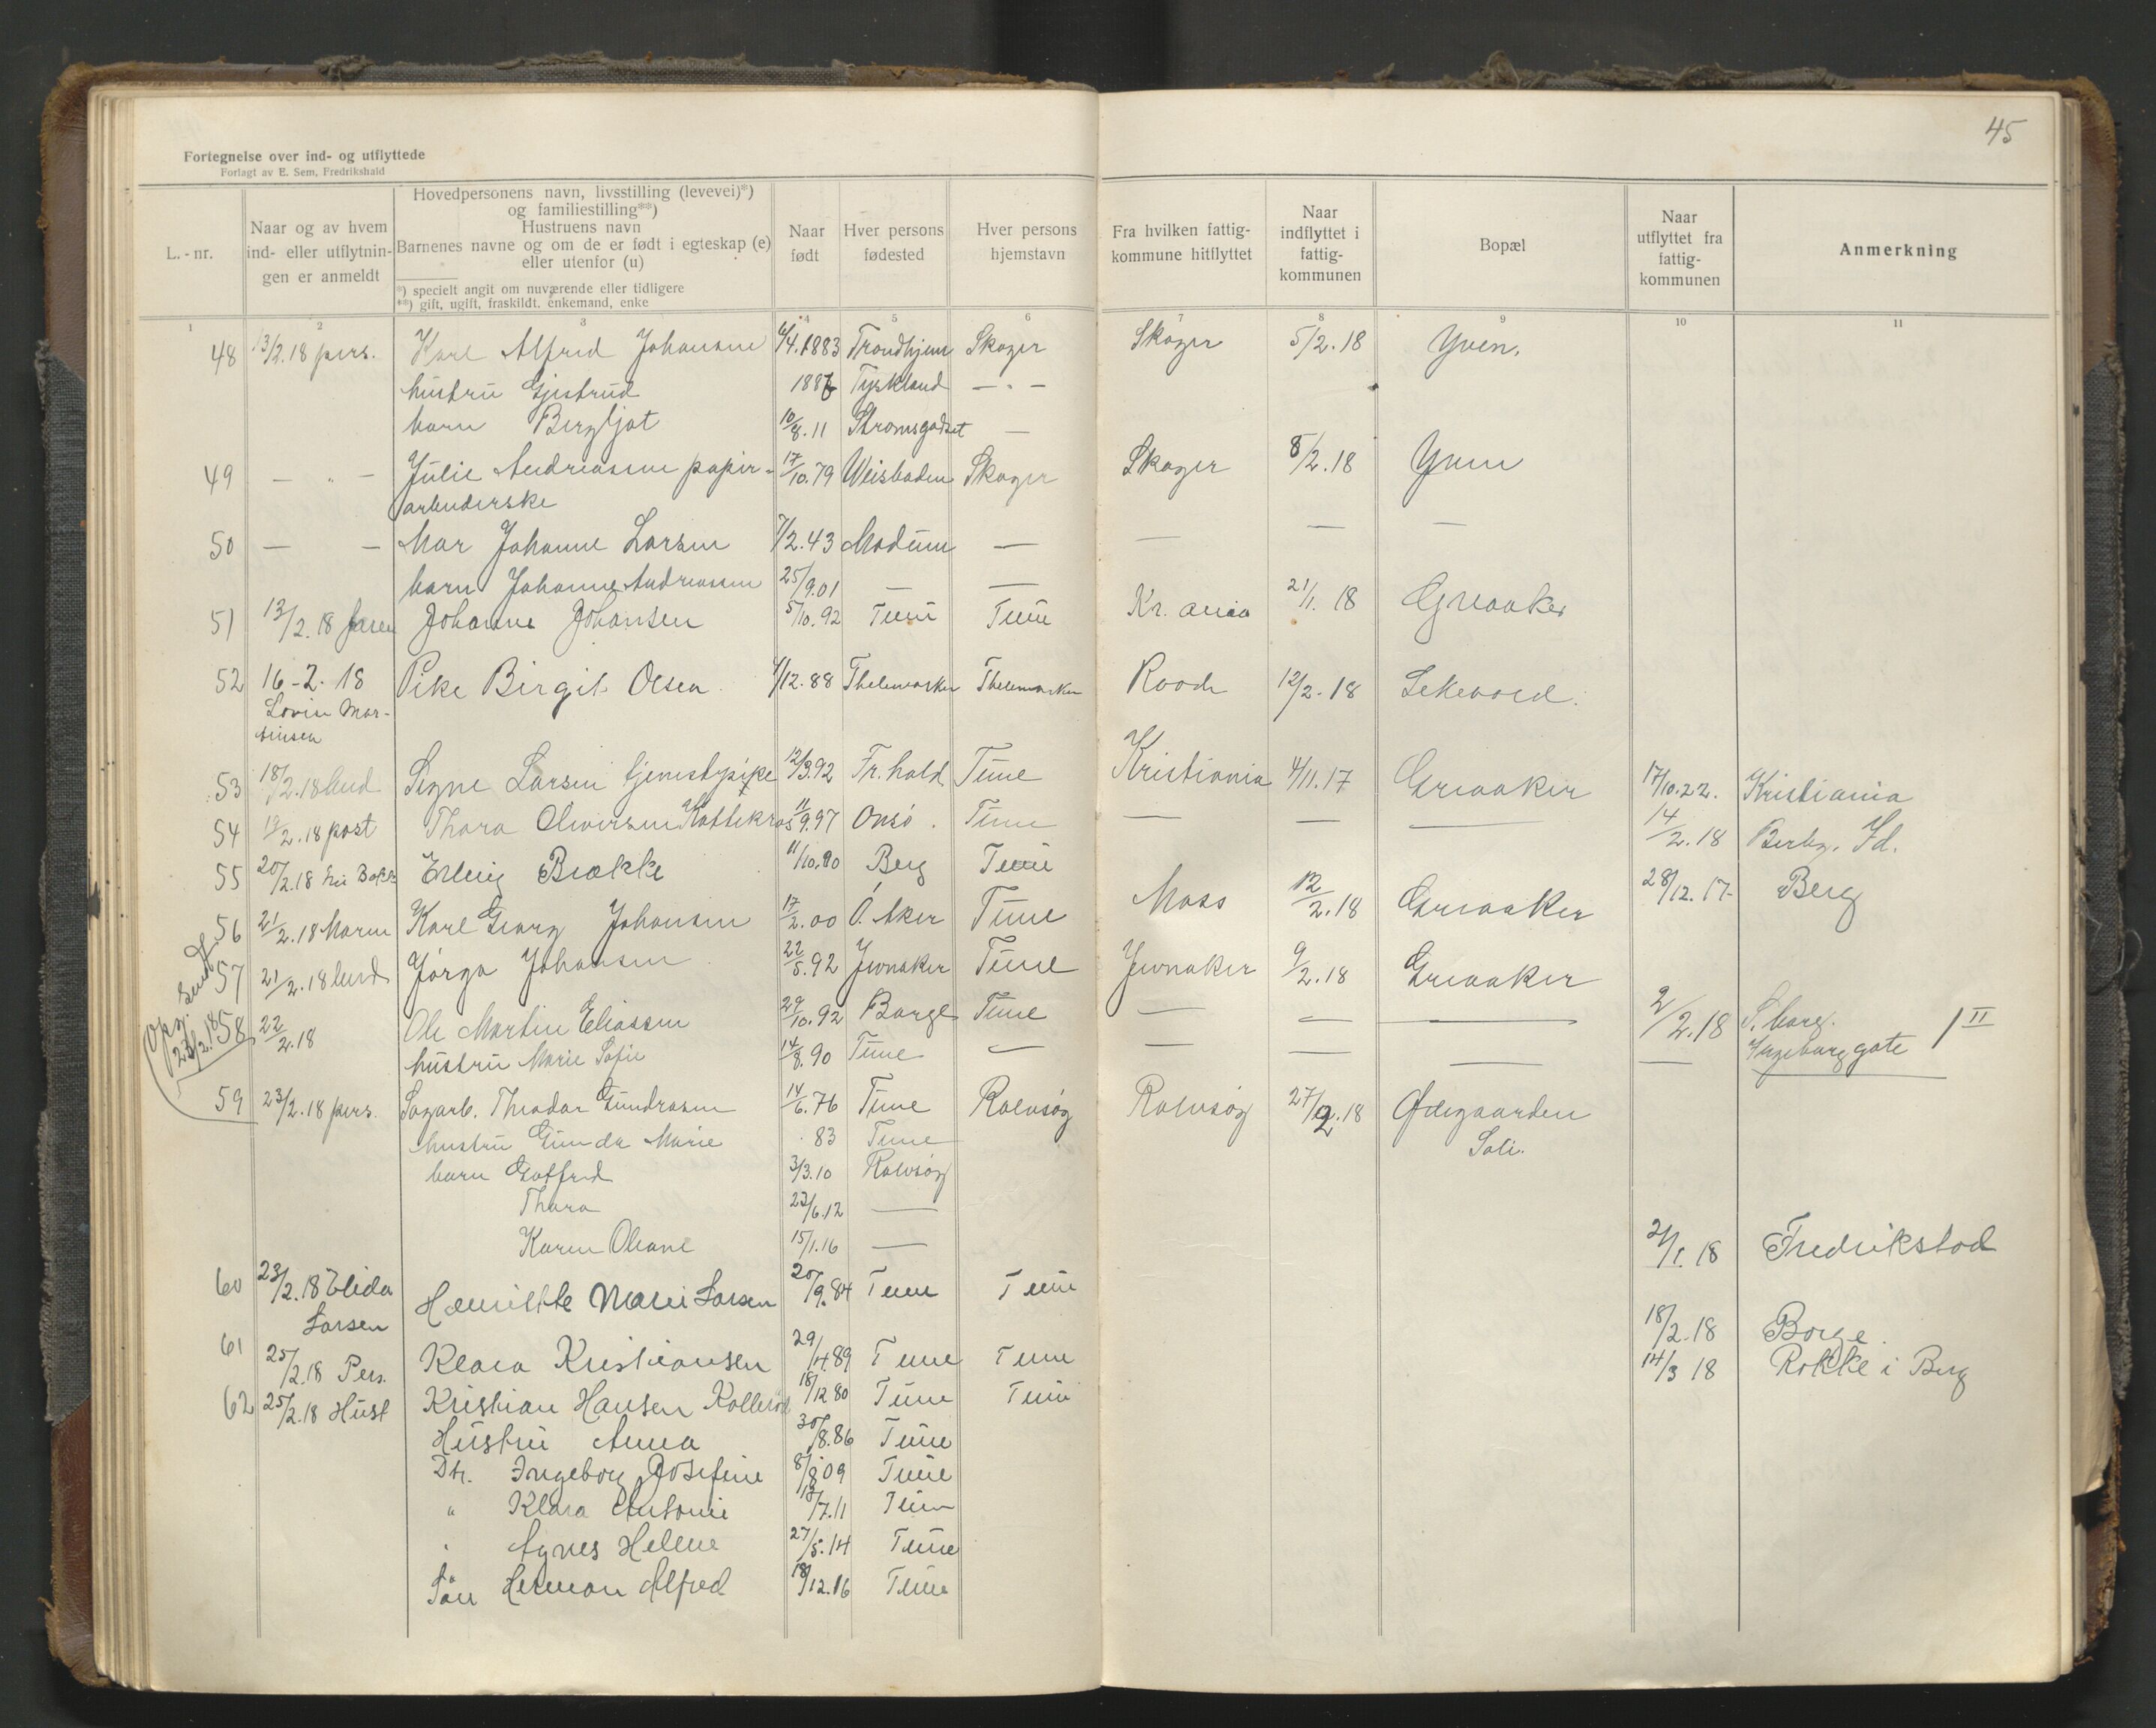 45
Fortegnelse over ind- og utflyttede
Forlagt av E. Sem, Fredrikshald
L.-nr.
Naar og av hvem ind- eller utflytnin- gen er anmeldt
Hovedpersonens navn, livsstilling (levevei)*)
og familiestilling**)
Hustruens navn
Barnenes navne og om de er født i egteskap (e)
eller utenfor (u)
*) specielt angit om nuværende eller tidligere
**) gift, ugift, fraskildt, enkemand, enke
Naar født
Hver persons fødested
Hver persons hjemstavn
Fra hvilken fattig- kommune hitflyttet
Naar indflyttet i fattig- kommunen
Bopæl
Naar utflyttet fra fattig- kommunen
Anmerkning
1 2 3 4 5 6 7 8 9 10 11
48 13/2.18 pers. Karl Alfred Johansen 6/4.1883 Trondhjem Skoger Skoger 5/2.18 Yven.
hustru Gjertrud 1887 Tyskland — " —
barn Bergljot 10/8.11 Strømsgodset —
49 — " — Julie Andreassen papir- 17/10.79 Weisbaden Skoger Skoger 8/2.18 Yven
arbeiderske
50 — — Mor Johanne Larsen 7/2.43 Modum — — — —
barn Johanne Andreassen 25/9.01 — —
51 13/2.18 Johanne Johansen 5/10.92 Tune Tune Kr.ania 21/1.18 Greaaker
52 16-2-18 Pike Birgit Olsen 1/12.88 Thelemarken Thelemarken Raade 12/2.18 Lekevold.
Lovin Mar-
tinsen
53 18/2.18 Signe Larsen tjenestepike 12/3.92 Fr.hald Tune Kristiania 4/11.17 Greaaker 17/10.22. Kristiania
54 19/2.18 post Thora Oliversen Kattekras 11/9.97 Onsø. Tune — — — 14/2.18 Berby. Id.
55 20/2.18 Erling Brække 11/10.90 Berg Tune 28/12.17 Berg
56 21/2.18 Moren Karl Georg Johansen 17/2.00 Ö. Aker Tune Moss 12/2.18 Greaaker
57 21/2.18 Jørga Johansen 22/5.92 Jevnaker Tune Jevnaker 9/2.18 Greaaker
Opg. sendt
23/2.18
58 22/2.18 Ole Martin Eliassen 29/10.92 Borge Tune — — — 2/2.18 S.borg.
hustru Marie Sofie 14/8.90 Tune — — — — — Ingeborggate 1 II
59 23/2.18 pers. Sagarb. Theodor Gundrosen 14/6.76 Tune Rolvsøy Rolvsøy 27/2.18 Ødegaarden
hustru Gunda Marie 83 Tune Soli.
barn Gotfred 3/3.10 Rolvsøy
Thora 23/6.12 —
Karen Oleane 15/1.16 —
60 23/2.18 Elida Henriette Marie Larsen 20/9.84 Tune Tune 21/1.18 Fredrikstad
Larsen
61 25/2.18 Pers. Klara Kristiansen 29/4.89 Tune Tune 18/2.18 Borge.
62 25/2.18 Hust Kristian Hansen Kollerød 18/12 80 Tune Tune 14/3 18 Rokke i Berg
Hustru Anna 30/8.86 Tune
Dtr. Ingeborg Josefine 8/8 09 Tune
" Klara Antonie 18/7.11 Tune
" Agnes Helene 27/5.14 Tune
Søn Herman Alfred 18/12.16 Tune